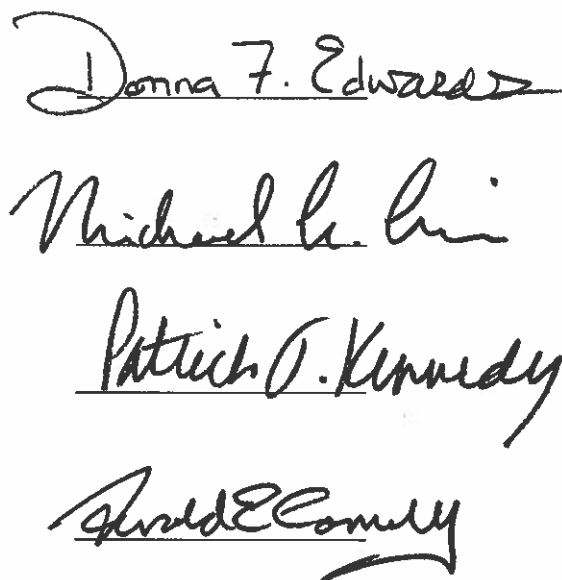 Donna F. Edwards
Michael
Patrick J. Kennedy
Gerald E Connolly